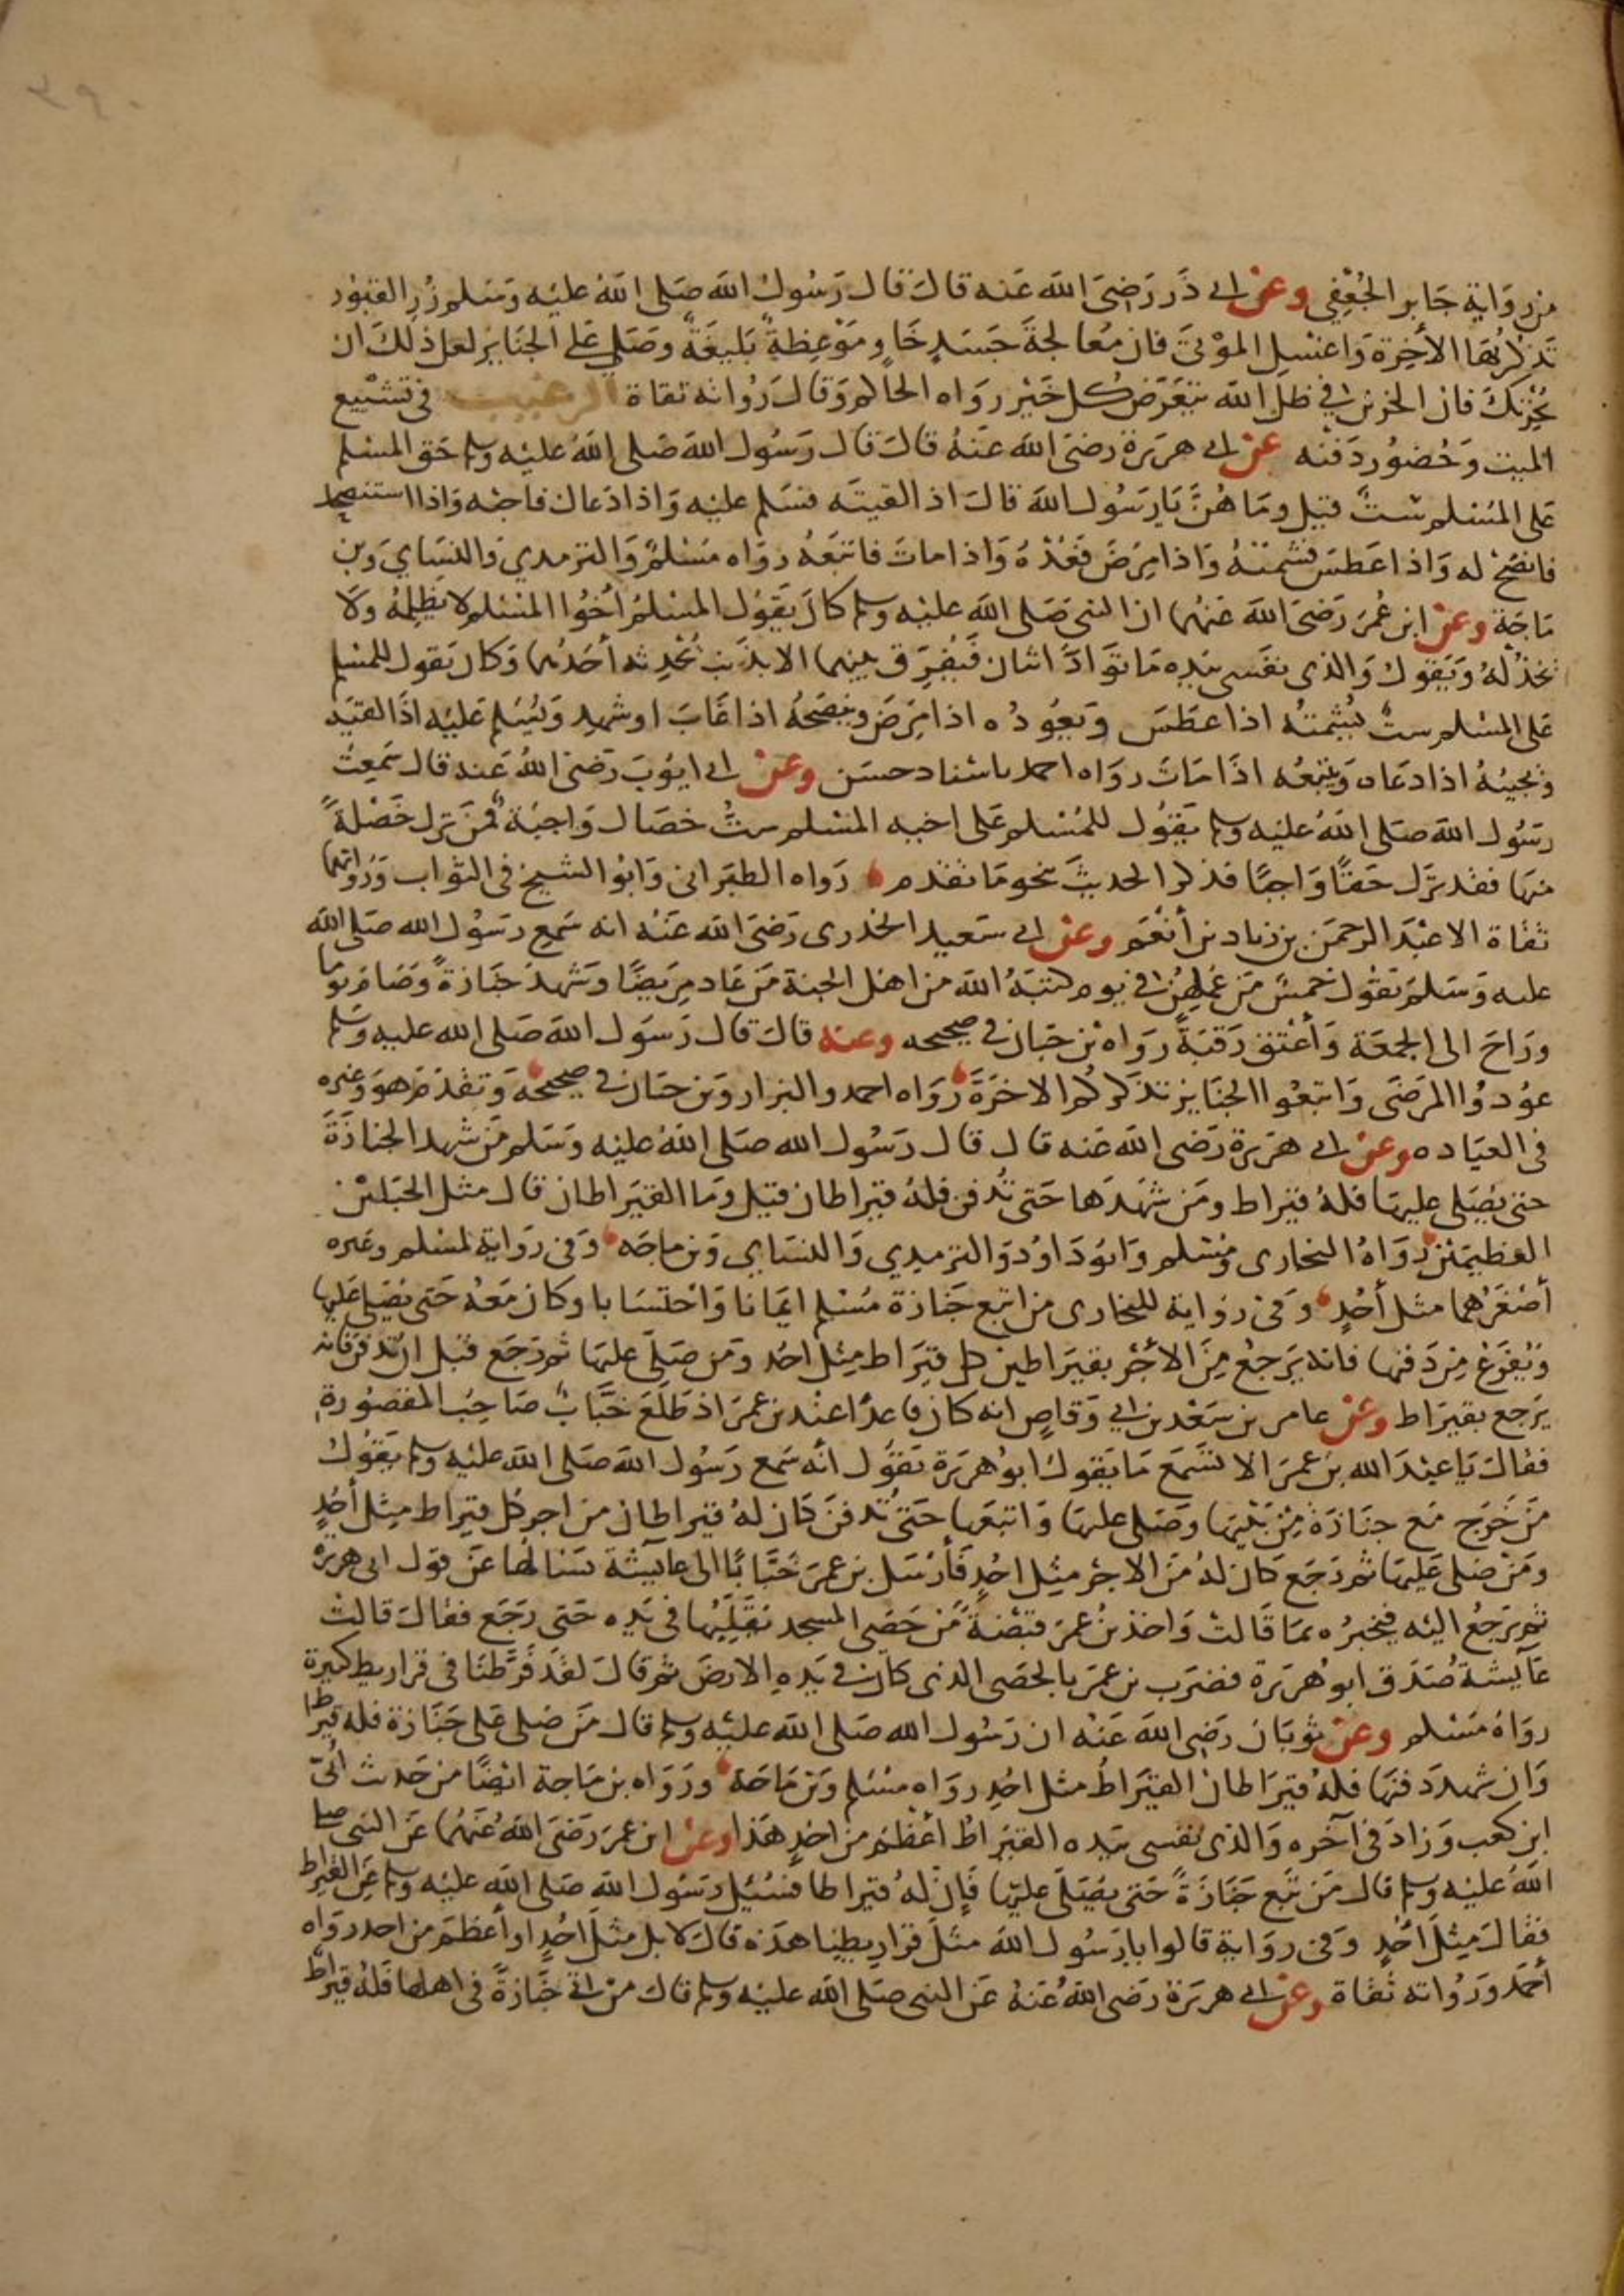 من رواية جابر الجعفي وعن ابي ذر رضي الله عنه قال قال رسول الله صلى الله عليه وسلم زر القبور
تذكر بها الآخرة واغسل الموتى فان معالجة جسد خاو موعظة بليغة وصل على الجنايز لعل ذلك ان
يحزنك فان الحزين في ظل الله يتعرض كل خير رواه الحاكم وقال رواته ثقاة الترغيب في تشييع
الميت وحضور دفنه عن ابي هريرة رضي الله عنه قال قال رسول الله صلى الله عليه وسلم حق المسلم
على المسلم ست قيل وما هن يا رسول الله قال اذا لقيته فسلم عليه واذا دعاك فاجبه واذا استنصحك
فانصح له واذا عطس فشمته واذا مرض فعده واذا مات فاتبعه رواه مسلم والترمدي والنساي وبن
ماجة وعن ابن عمر رضي الله عنهما ان النبي صلى الله عليه وسلم كان يقول المسلم أخوا المسلم لا يظلمه ولا
يخذله ويقول والذى نفسى بيده ما تواد اثنان فيفرق بينهما الا بذنب يحدثه أحدهما وكان يقول للمسلم
على المسلم ست يشمته اذا عطس ويعوده اذا مرض وينصحه اذا غاب اوشهد ويسلم عليه اذا لقيه
ويجيبه اذا دعاه ويتبعه اذا مات رواه احمد باسناد حسن وعن ابي ايوب رضي الله عنه قال سمعت
رسول الله صلى الله عليه وسلم يقول للمسلم على اخيه المسلم ست خصال واجبة فمن ترك خصلة
منها فقد ترك حقا واجبا فذكر الحديث بنحو ما تقدم رواه الطبراني وابو الشيخ في الثواب ورواتهما
ثقاة الا عبد الرحمن بن زياد بن أنعم وعن ابي سعيد الخدرى رضي الله عنه انه سمع رسول الله صلى الله
عليه وسلم يقول خمس من عملهن في يوم كتبه الله من اهل الجنة من عاد مريضا وشهد جنازة وصام يوما
وراح الى الجمعة وأعتق رقبة رواه بن حبان في صحيحه وعنه قال قال رسول الله صلى الله عليه وسلم
عودوا المرضى واتبعوا الجنايز تذكركم الاخرة رواه احمد والبزار وبن حبان في صحيحه وتقدم هو وغيره
في العياده وعن ابي هريرة رضي الله عنه قال قال رسول الله صلى الله عليه وسلم من شهد الجنازة
حتى يصلى عليها فله قيراط ومن شهدها حتى تدفن فله قيراطان قيل وما القيراطان قال مثل الجبلين
العظيمين رواه البخارى ومسلم وابو داود والترميدي والنساي وبن ماجه وفي رواية لمسلم وغيره
أصغرهما مثل أحد وفي رواية للبخارى من اتبع جنازة مسلم ايمانا واحتسابا وكان معه حتى يصلى عليها
ويفرغ من دفنها فانه يرجع من الأجر بقيراطين كل قيراط مثل احد ومن صلى عليها ثم رجع قبل ان تدفن فانه
يرجع بقيراط وعن عامر بن سعد بن ابي وقاص انه كان قاعدا عند بن عمر اذ طلع خباب صاحب المقصورة
فقال يا عبد الله بن عمر الا تسمع ما يقول ابو هريرة يقول أنه سمع رسول الله صلى الله عليه وسلم يقول
من خرج مع جنازة من بيتها وصلى عليها واتبعها حتى تدفن كان له قيراطان من اجر كل قيراط مثل أحد
ومن صلى عليها ثم رجع كان له من الاجر مثل احد فأرسل بن عمر خبابا الى عايشة يسالها عن قول ابى هريرة
ثم يرجع اليه فيخبره بما قالت واخذ بن عمر قبضة من حصى المسجد يقلبها في يده حتى رجع فقال قالت
عايشة صدق ابو هريرة فضرب بن عمر بالحصى الذى كان في يده الارض ثم قال لقد فرطنا في قراريط كثيرة
رواه مسلم وعن ثوبان رضي الله عنه ان رسول الله صلى الله عليه وسلم قال من صلى على جنازة فله قيراط
وان شهد دفنها فله قيراطان القيراط مثل احد رواه مسلم وبن ماجة ورواه بن ماجة ايضا من حديث أبي
ابن كعب وزاد في آخره والذى نفسى بيده القيراط أعظم من احد هذا وعن ابن عمر رضي الله عنهما عن النبي صلى
الله عليه وسلم قال من تبع جنازة حتى يصلى عليها فإن له قيراطا فسئل رسول الله صلى الله عليه وسلم عن القيراط
فقال مثل أحد وفي رواية قالوا يارسول الله مثل قراريطنا هذه قال لا بل مثل احد او أعظم من احد رواه
أحمد ورواته ثقاة وعن ابي هريرة رضي الله عنه عن النبي صلى الله عليه وسلم قال من اتى جنازة في اهلها فله قيراط